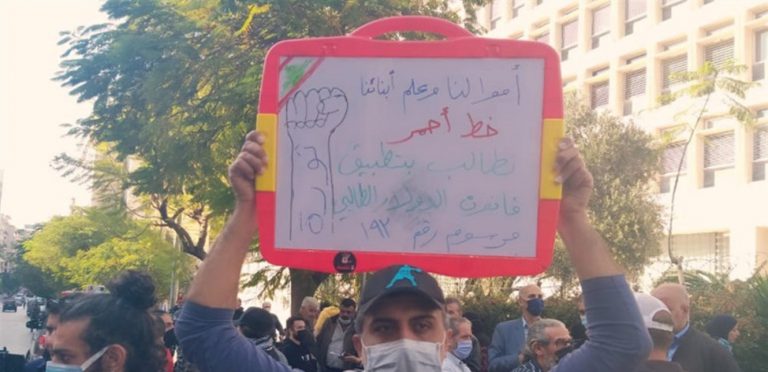 أموالنا وعلم أبنائنا
خط أحمر
نطالب بتطبيق
قانون الدولار الطالبي
مرسوم رقم ١٩٣